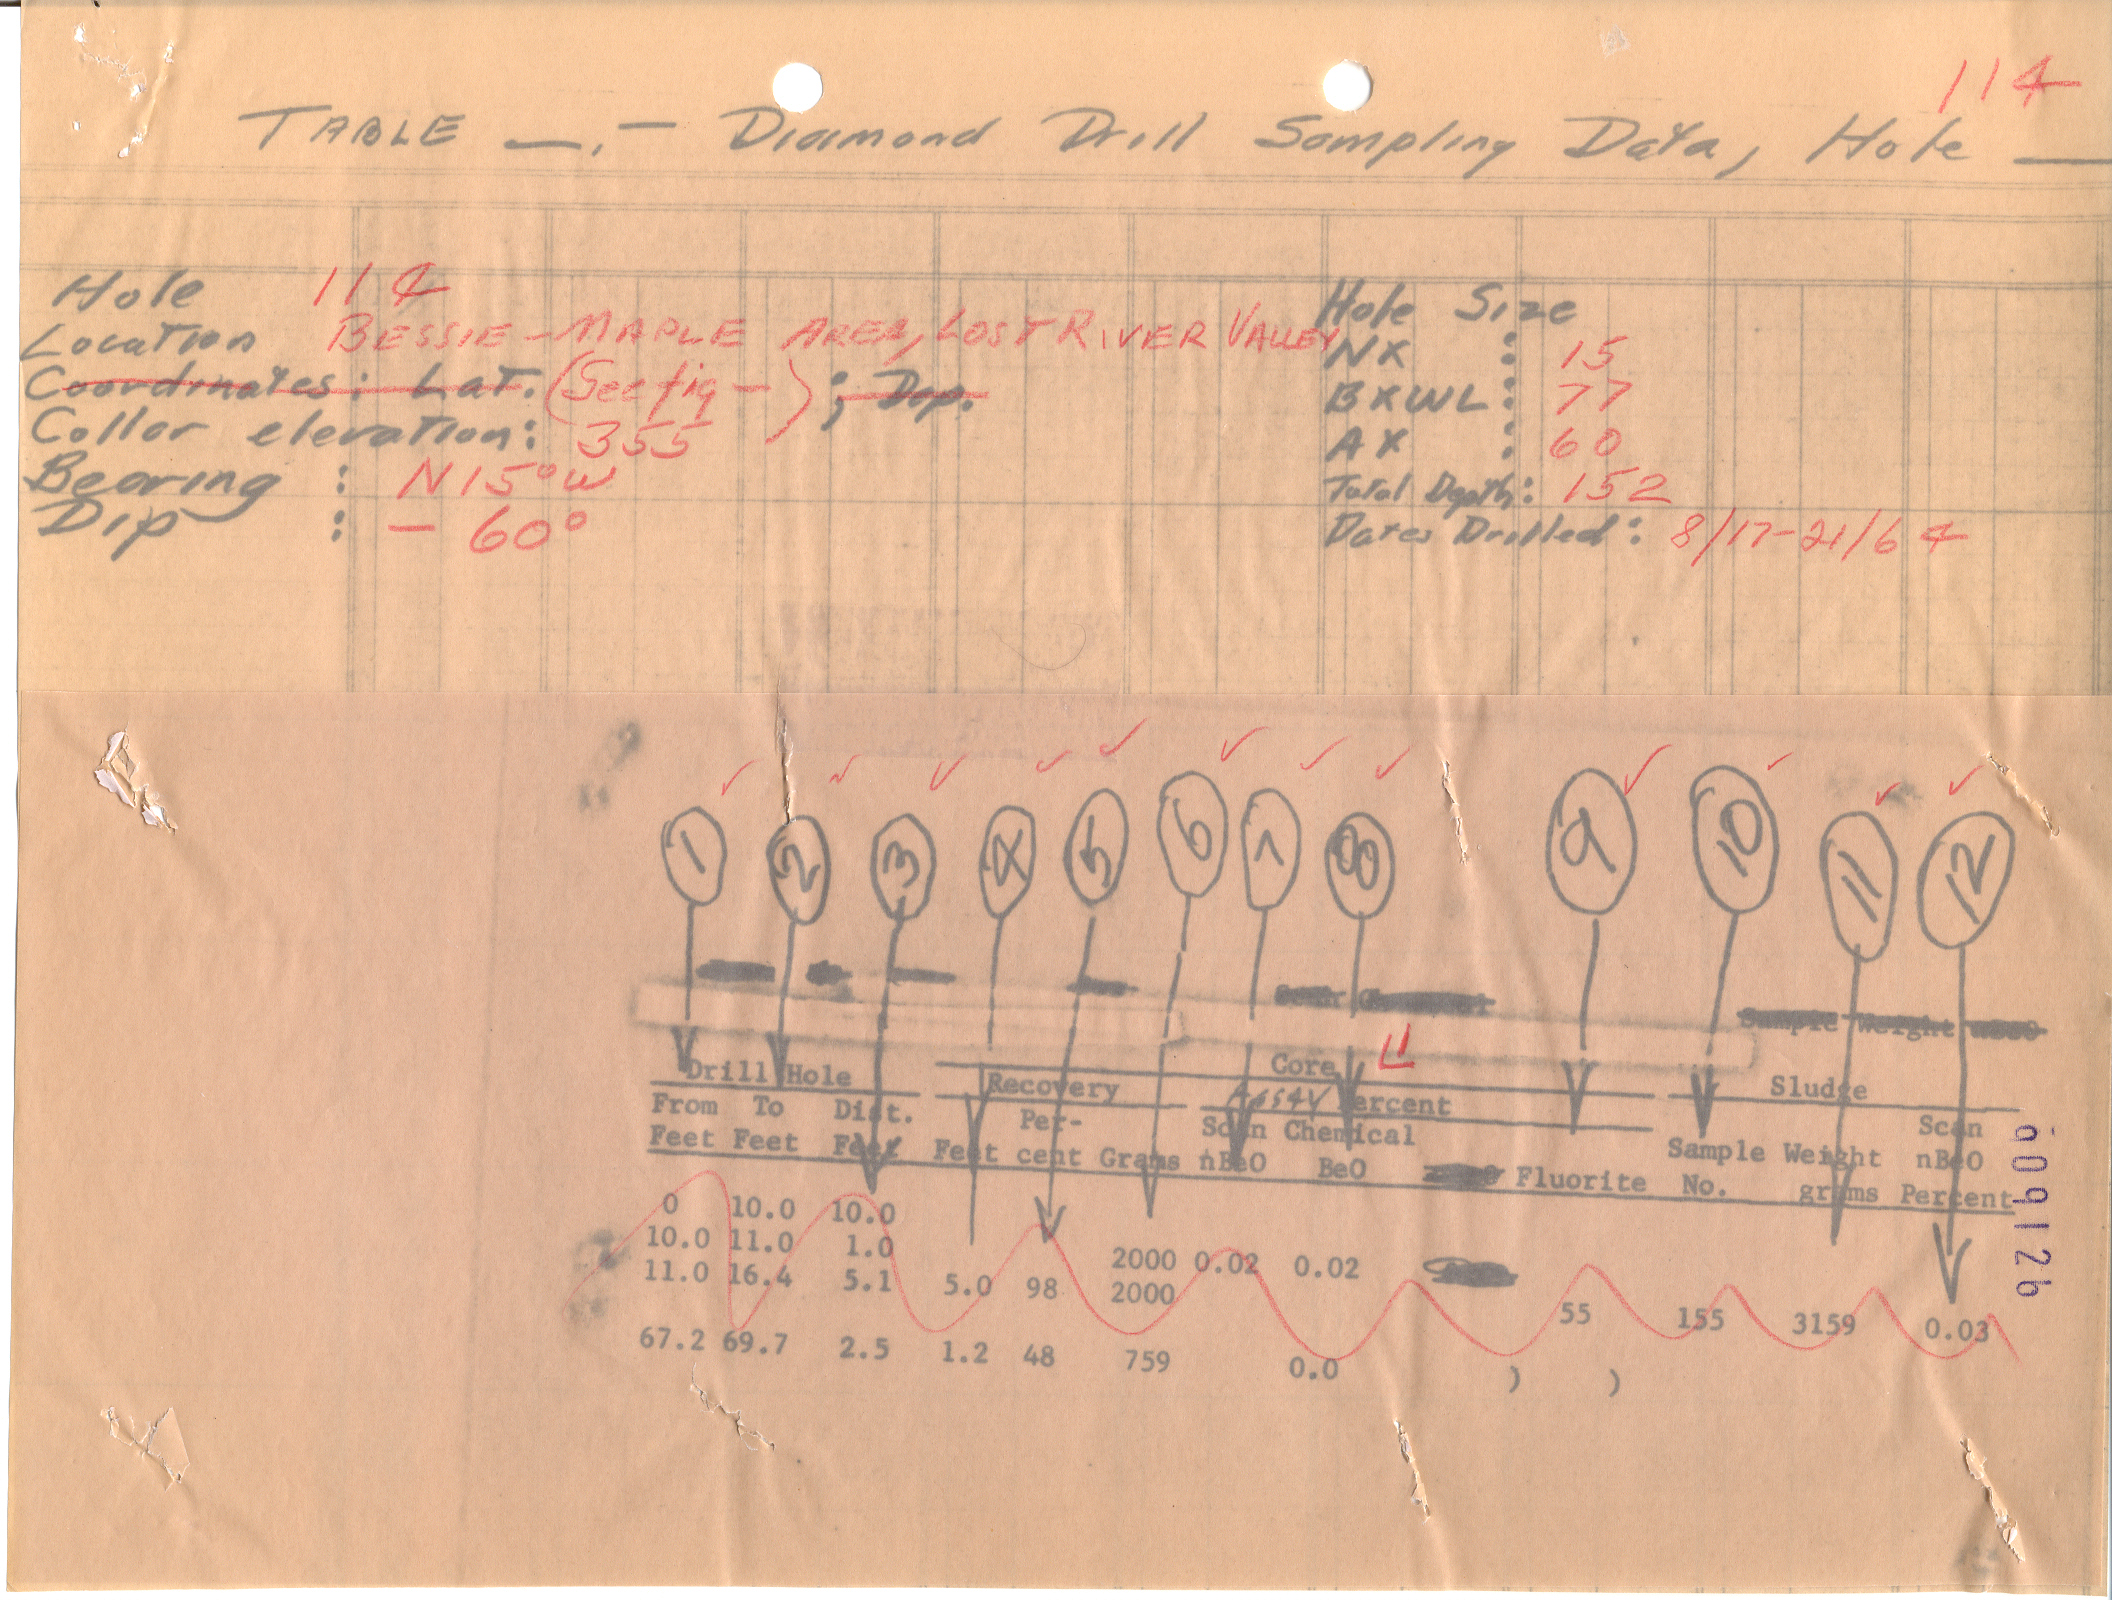 114
TABLE __.- Diamond Drill Sampling Data, Hole __
Hole 114
Location BESSIE-MAPLE AREA, LOST RIVER VALLEY
Coordinates: Lat. (See fig —) ; Dep.
Collar elevation: 355
Bearing : N15°W
Dip : - 60°
Hole Size
NX : 15
BXWL : 77
AX : 60
Total Depth: 152
Dates Drilled: 8/17-21/64
1 2 3 4 5 6 7 8 9 10 11 12
Sample Weight nBeO
Drill Hole Core Sludge
Recovery Assay Percent
From To Dist. Per- Scan Chemical Scan
Feet Feet Feet Feet cent Grams nBeO BeO Fluorite Sample No. Weight grams nBeO Percent
0 10.0 10.0
10.0 11.0 1.0 2000 0.02 0.02
11.0 16.4 5.1 5.0 98 2000 55 155 3159 0.03
67.2 69.7 2.5 1.2 48 759 0.0 ) )
609126